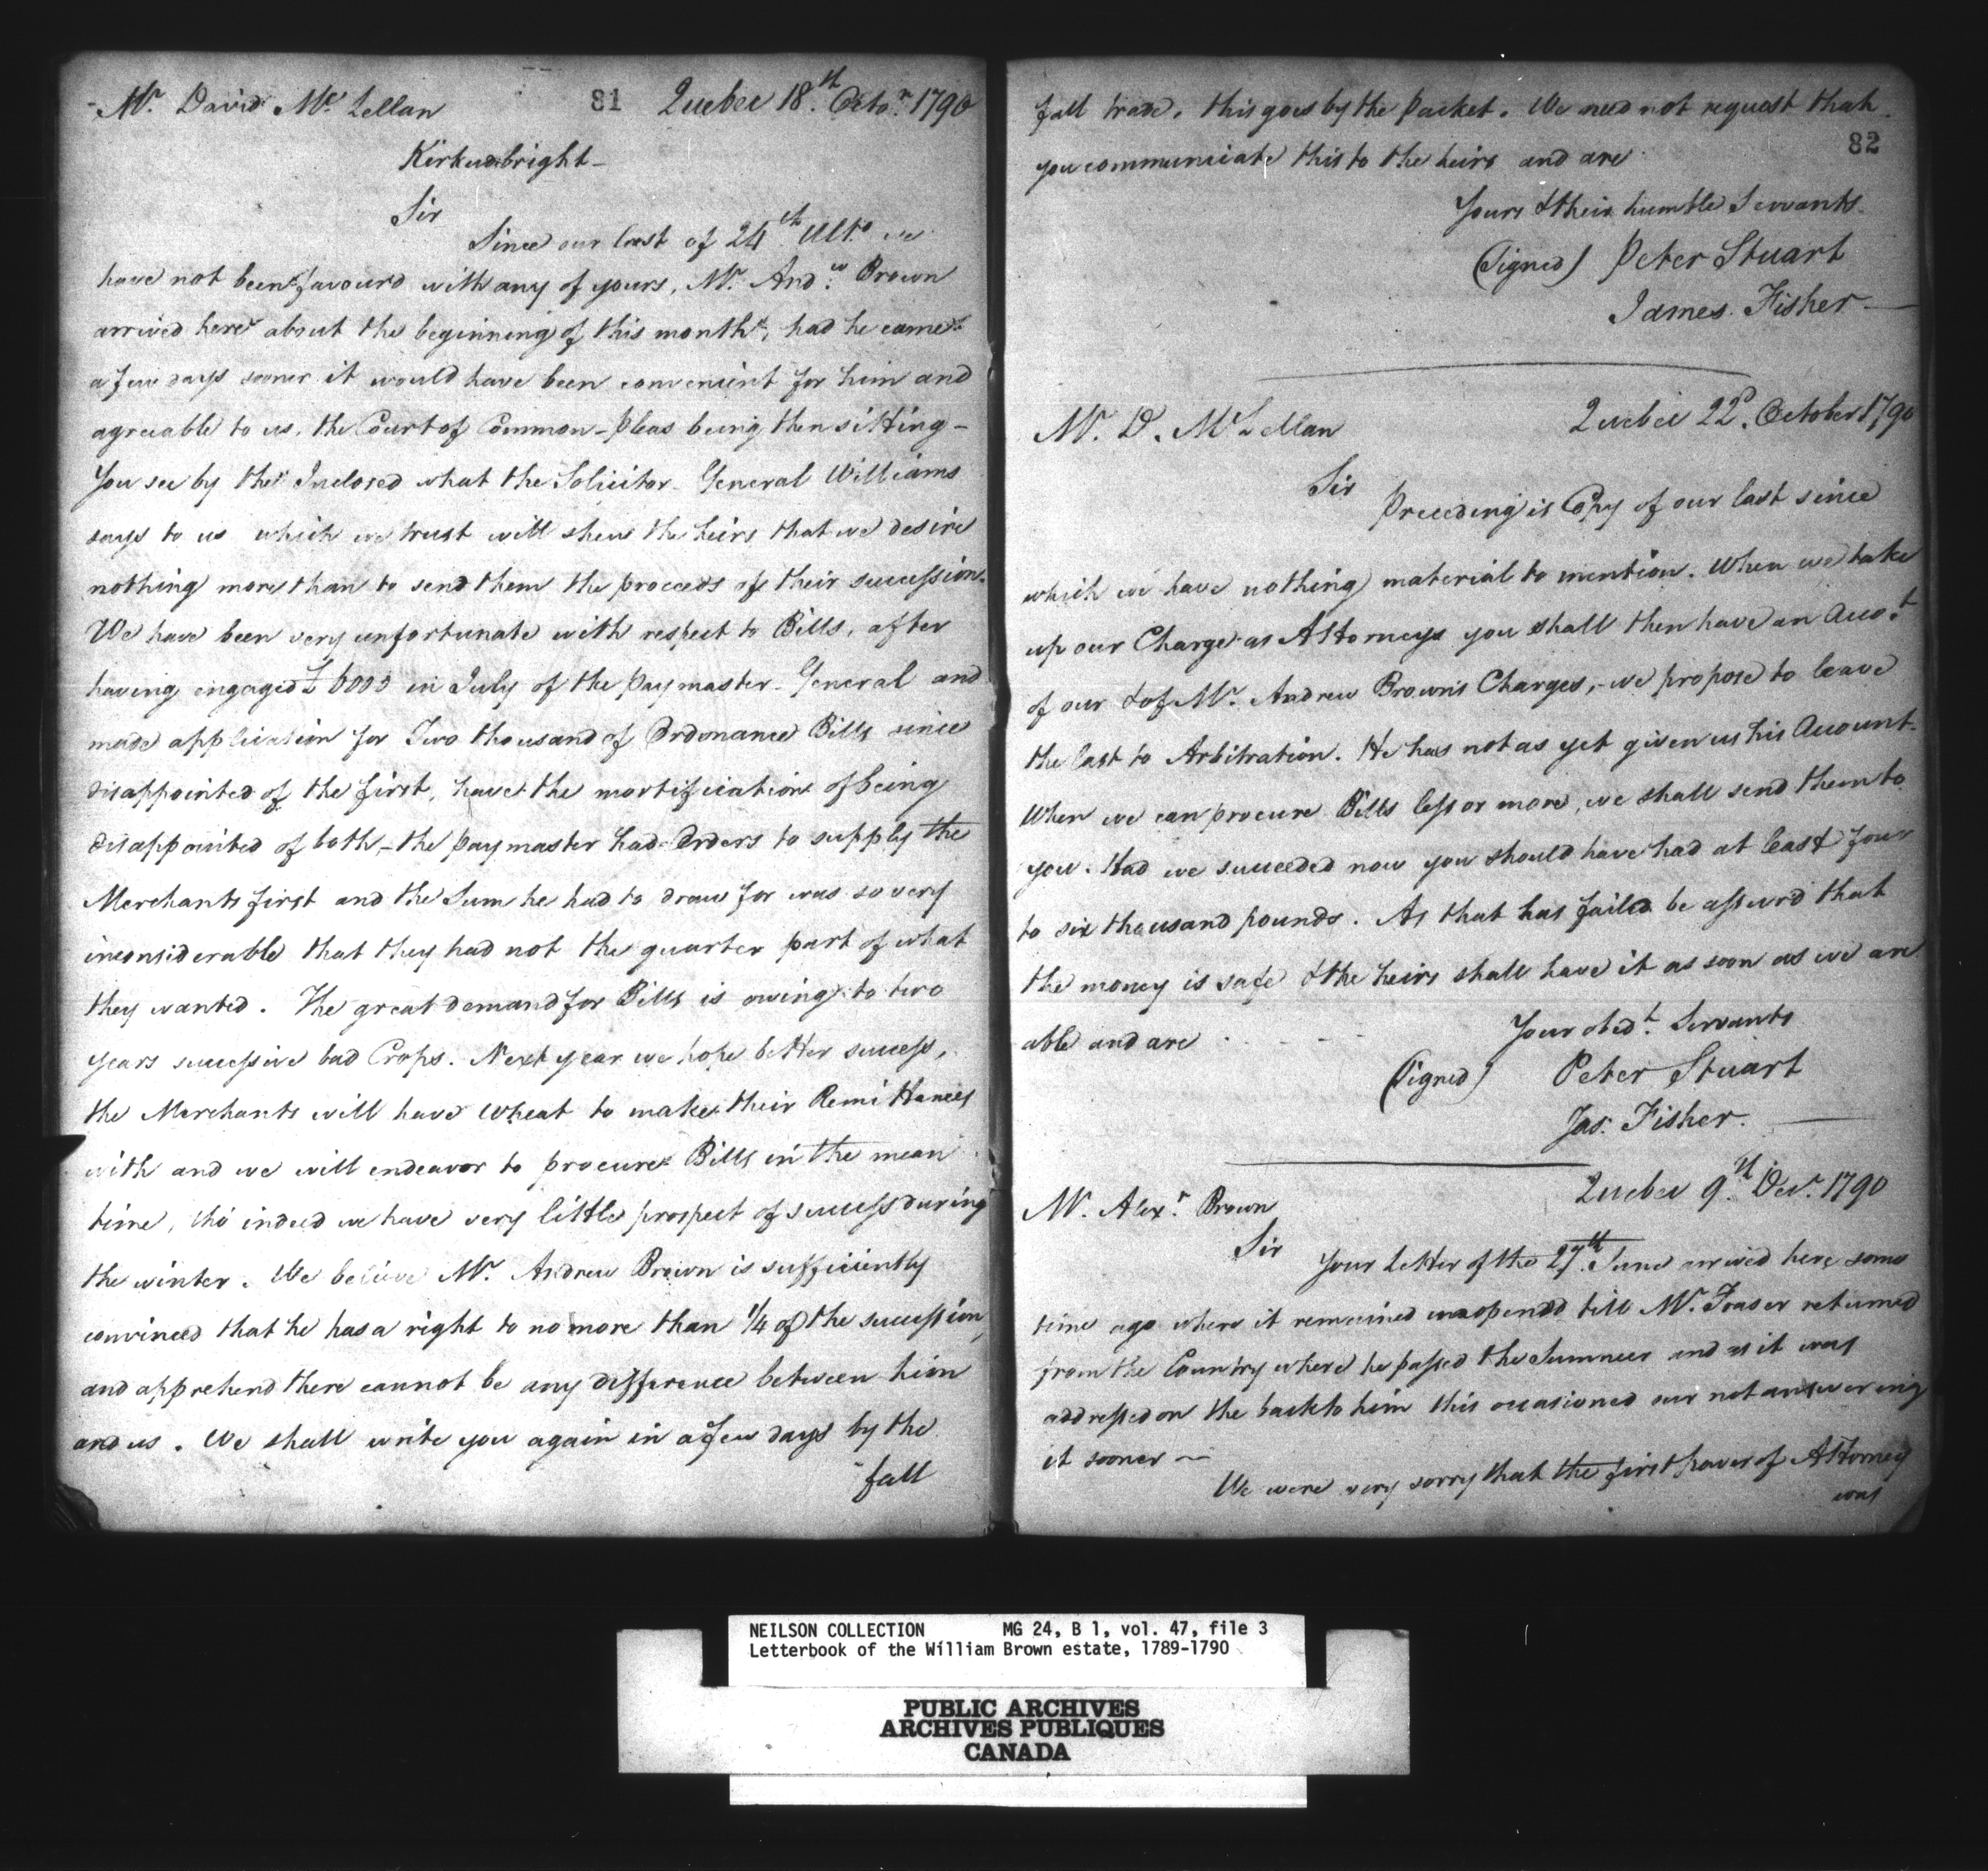 Mr. David Mc Lellan 81 Quebec 18th. Octor. 1790
Kirkudbright-
Sir
Since our last of 24th Ulto. we
have not been favourd with any of yours, Mr. Andw. Brown
arrived here about the beginning of this month, had he came
a few days sooner it would have been convenient for him and
agreeable to us, the Court of Common-pleas being then sitting-
You see by the Inclosed what the Solicitor-General Williams
says to us which we trust will shew the heirs that we desire
nothing more than to send them the proceeds of their succession.
We have been very unfortunate with respect to Bills, after
having engaged £6000 in July of the paymaster-General and
made application for Two thousand of Ordonance Bills since
disappointed of the first, have the mortification of being
disappointed of both,- the paymaster had Orders to supply the
Merchants first and the Sum he had to draw for was so very
inconsiderable that they had not the quarter part of what
they wanted. The great demand for Bills is owing to two
years successive bad Crops. Next year we hope better success,
the Merchants will have wheat to make their Remittances
with and we will endeavor to procure Bills in the mean
time, tho' indeed we have very little prospect of success during
the winter. We believe Mr. Andrew Brown is sufficiently
convinced that he has a right to no more than 1/4 of the succession,
and apprehend there cannot be any difference between him
and us. We shall write you again in a few days by the
fall
fall trade. this goes by the packet. We need not request that
82
you communicate this to the heirs and are
Yours & their humble Servants.
(Signed) Peter Stuart
James Fisher
Quebec 22d. October 1790
Mr. D. McLellan
Sir
Preceding is Copy of our last since
which we have nothing material to mention. When we take
up our Charge as Attorneys you shall then have an Accot.
of our & of Mr. Andrew Brown's Charges,- we propose to leave
the last to Arbitration. He has not as yet given us his Account.
When we can procure Bills less or more, we shall send them to
you. Had we succeeded now you should have had at least four
to six thousand pounds. As that has failed be assurd that
the money is safe & the heirs shall have it as soon as we are
able and are - - - - Your obedt. Servants
(Signed) Peter Stuart
Jas. Fisher.
Quebec 9th. Decr. 1790
Mr. Alexr. Brown
Sir
Your Letter of the 27th. June arrived here some
time ago where it remained unopened till Mr. Fraser returned
from the Country where he passed the Summer and as it was
addressed on the back to him this occasioned our not answering
it sooner ~
We were very sorry that the first power of Attorney
was
NEILSON COLLECTION MG 24, B 1, vol. 47, file 3
Letterbook of the William Brown estate, 1789-1790
PUBLIC ARCHIVES
ARCHIVES PUBLIQUES
CANADA